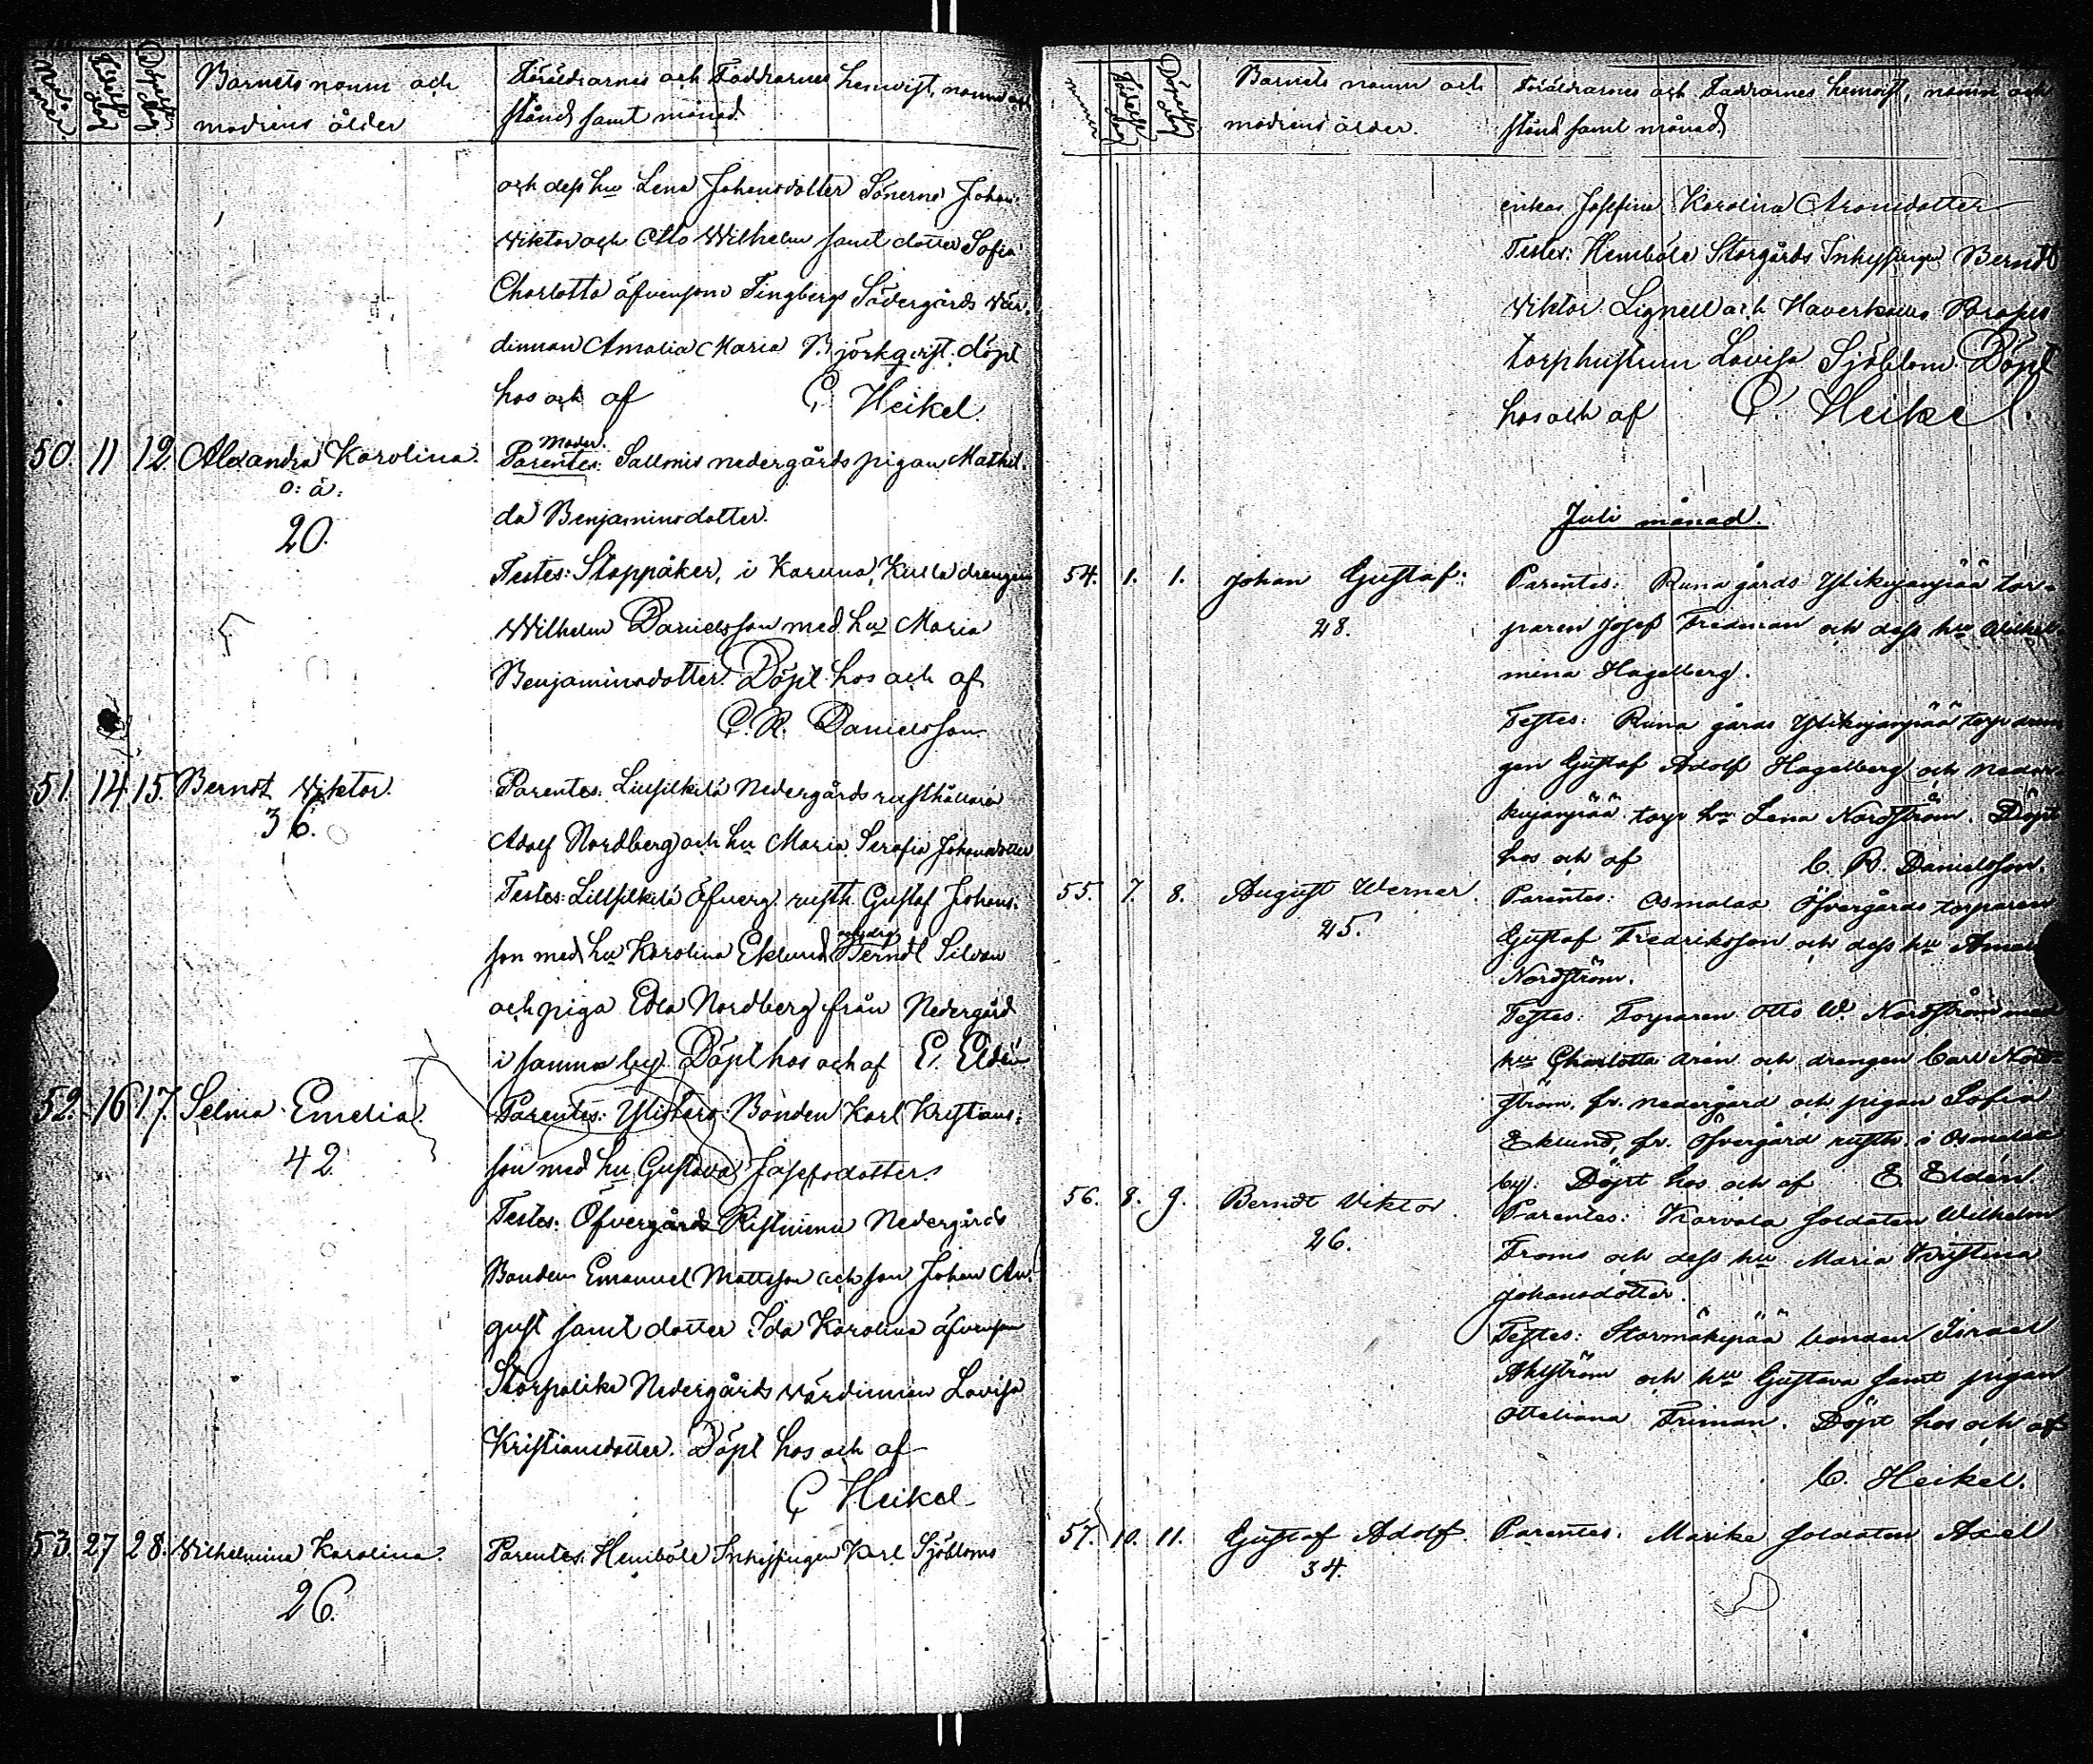 Nummer
Födelsedag
Döpelsedag
Barnets namn och
modrens ålder
Föräldrarnes och Faddrarnes hemvist, namn och
stånd samt månad.
och dess hu Lena Johansdotter Sönerne Johan
Viktor och Otto Wilhelm samt dotter Sofia
Charlotta äfvensom Tingbergs Södergårds vär-
dinnan Amalia Maria Björkqvist. döpt
hos och af C. Heikel.
50. 11 12 Alexandra Karolina.
o: ä:
20.
Moder.
Parentes: Sallmis nedergårds pigan Mathil-
da Benjaminsdotter.
Testes: Stoppåker, i Karuna, Kulla drengen
Wilhelm Danielsson med hu Maria
Benjaminsdotter. Döpt hos och af
C. R. Danielsson
51. 14 15. Berndt Viktor.
36.
Parentes: Lillsilkilä Nedergårds rusthållare
Adolf Nordberg och hu Maria Serafia Johansdotter
Testes: Lillsilkilä Öfverg. rusth. Gustaf Johans-
son med hu Karolina Eklund Berndt Silvan
och piga Edla Nordberg från Nedergård
i samma by. Döpt hos och af E. Eldén
52. 16 17. Selma Emelia.
42.
Parentes: Ylistaro Bonden Karl Kristians-
son med hu Gustava Josefsdotter.
Testes: Öfvergårds Ristniemi Nedergårds
Bonden Emanuel Mattsson och son Johan Au-
gust samt dotter Ida Karolina äfvensom
Storpalike Nedergårds värdinnan Lovisa
Kristiansdotter. Döpt hos och af
C Heikel
53. 27 28. Vilhelmina Karolina.
26.
Parentes: Hemböle Inhysingen Karl Sjöbloms
nummer
Födelsedag
Döpelsedag
Barnets namn och
modrens ålder.
Föräldrarnes och Faddrarnes hemvist, namn och
stånd samt månad.
enkas Josefina Karolina Aronsdotter
Testes: Hemböle Storgårds Inhysingen Berndt
Viktor Lignell och Haverkulla
torphustrun Lovisa Sjöblom. Döpt
hos och af C. Heikel.
Juli månad.
54. 1. 1. Johan Gustaf:
28.
Parentes: Runa gårds Ylikujanpää tor-
paren Josef Fredman och dess hu Wilhel-
mina Hagelberg.
Testes: Runa gårds Ylikujanpää torp dren-
gen Gustaf Adolf Hagelberg och neder-
kujanpää torp hu Lena Nordström. Döpt
hos och af C. R. Danielsson.
55. 7. 8. August Werner.
25.
Parentes: Osmalax Öfvergårds torparen
Gustaf Fredriksson och dess hu
Nordström.
Testes: Torparen Otto W. Nordström med
hu Charlotta Arén och drengen Carl Nord-
ström. fr. nedergård och pigan Sofia
Eklund, fr. Öfvergård rusth. i Osmalax
by. Döpt hos och af E. Eldén.
56. 8. 9. Berndt Viktor.
26.
Parentes: Karvala soldaten Wilhelm
Froms och dess hu Maria Kristina
Johansdotter.
Testes: Stormäkipää bonden Israel
Ahlström och hu Gustava samt pigan
Ottiliana Friman. Döpt hos och af
C. Heikel.
57. 10. 11. Gustaf Adolf.
34.
Parentes. Marike soldaten Axel